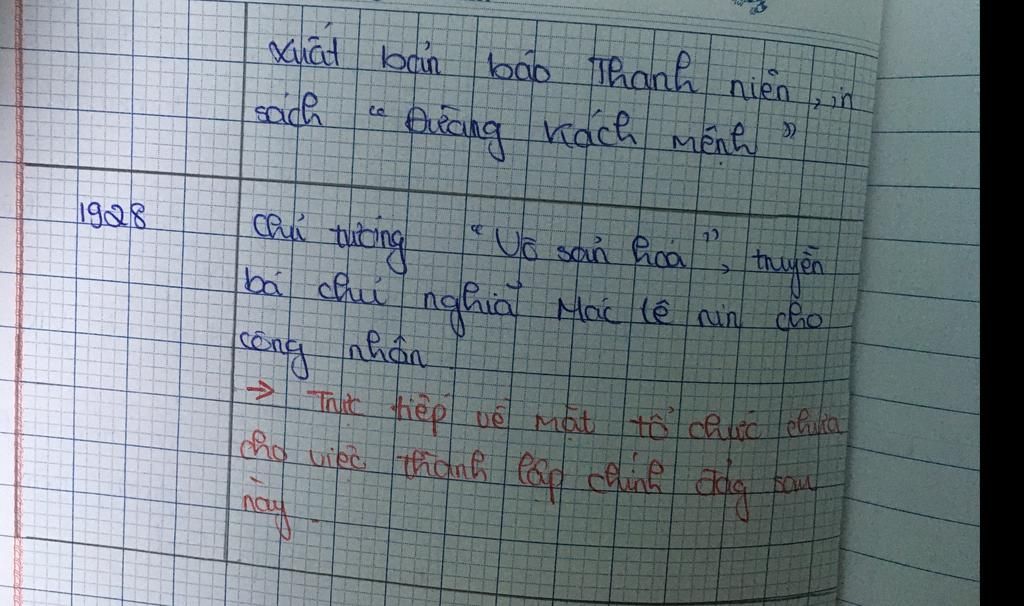 xuất bản báo Thanh niên, in
sách " Đường Kách mệnh "
1928 Chủ tương "Vô sản hoá", truyền
bá chủ nghiã Mác Lê nin cho
công nhân
→ Trực tiếp về mặt tổ chức
cho việc thành lập chính đảg sau
này.